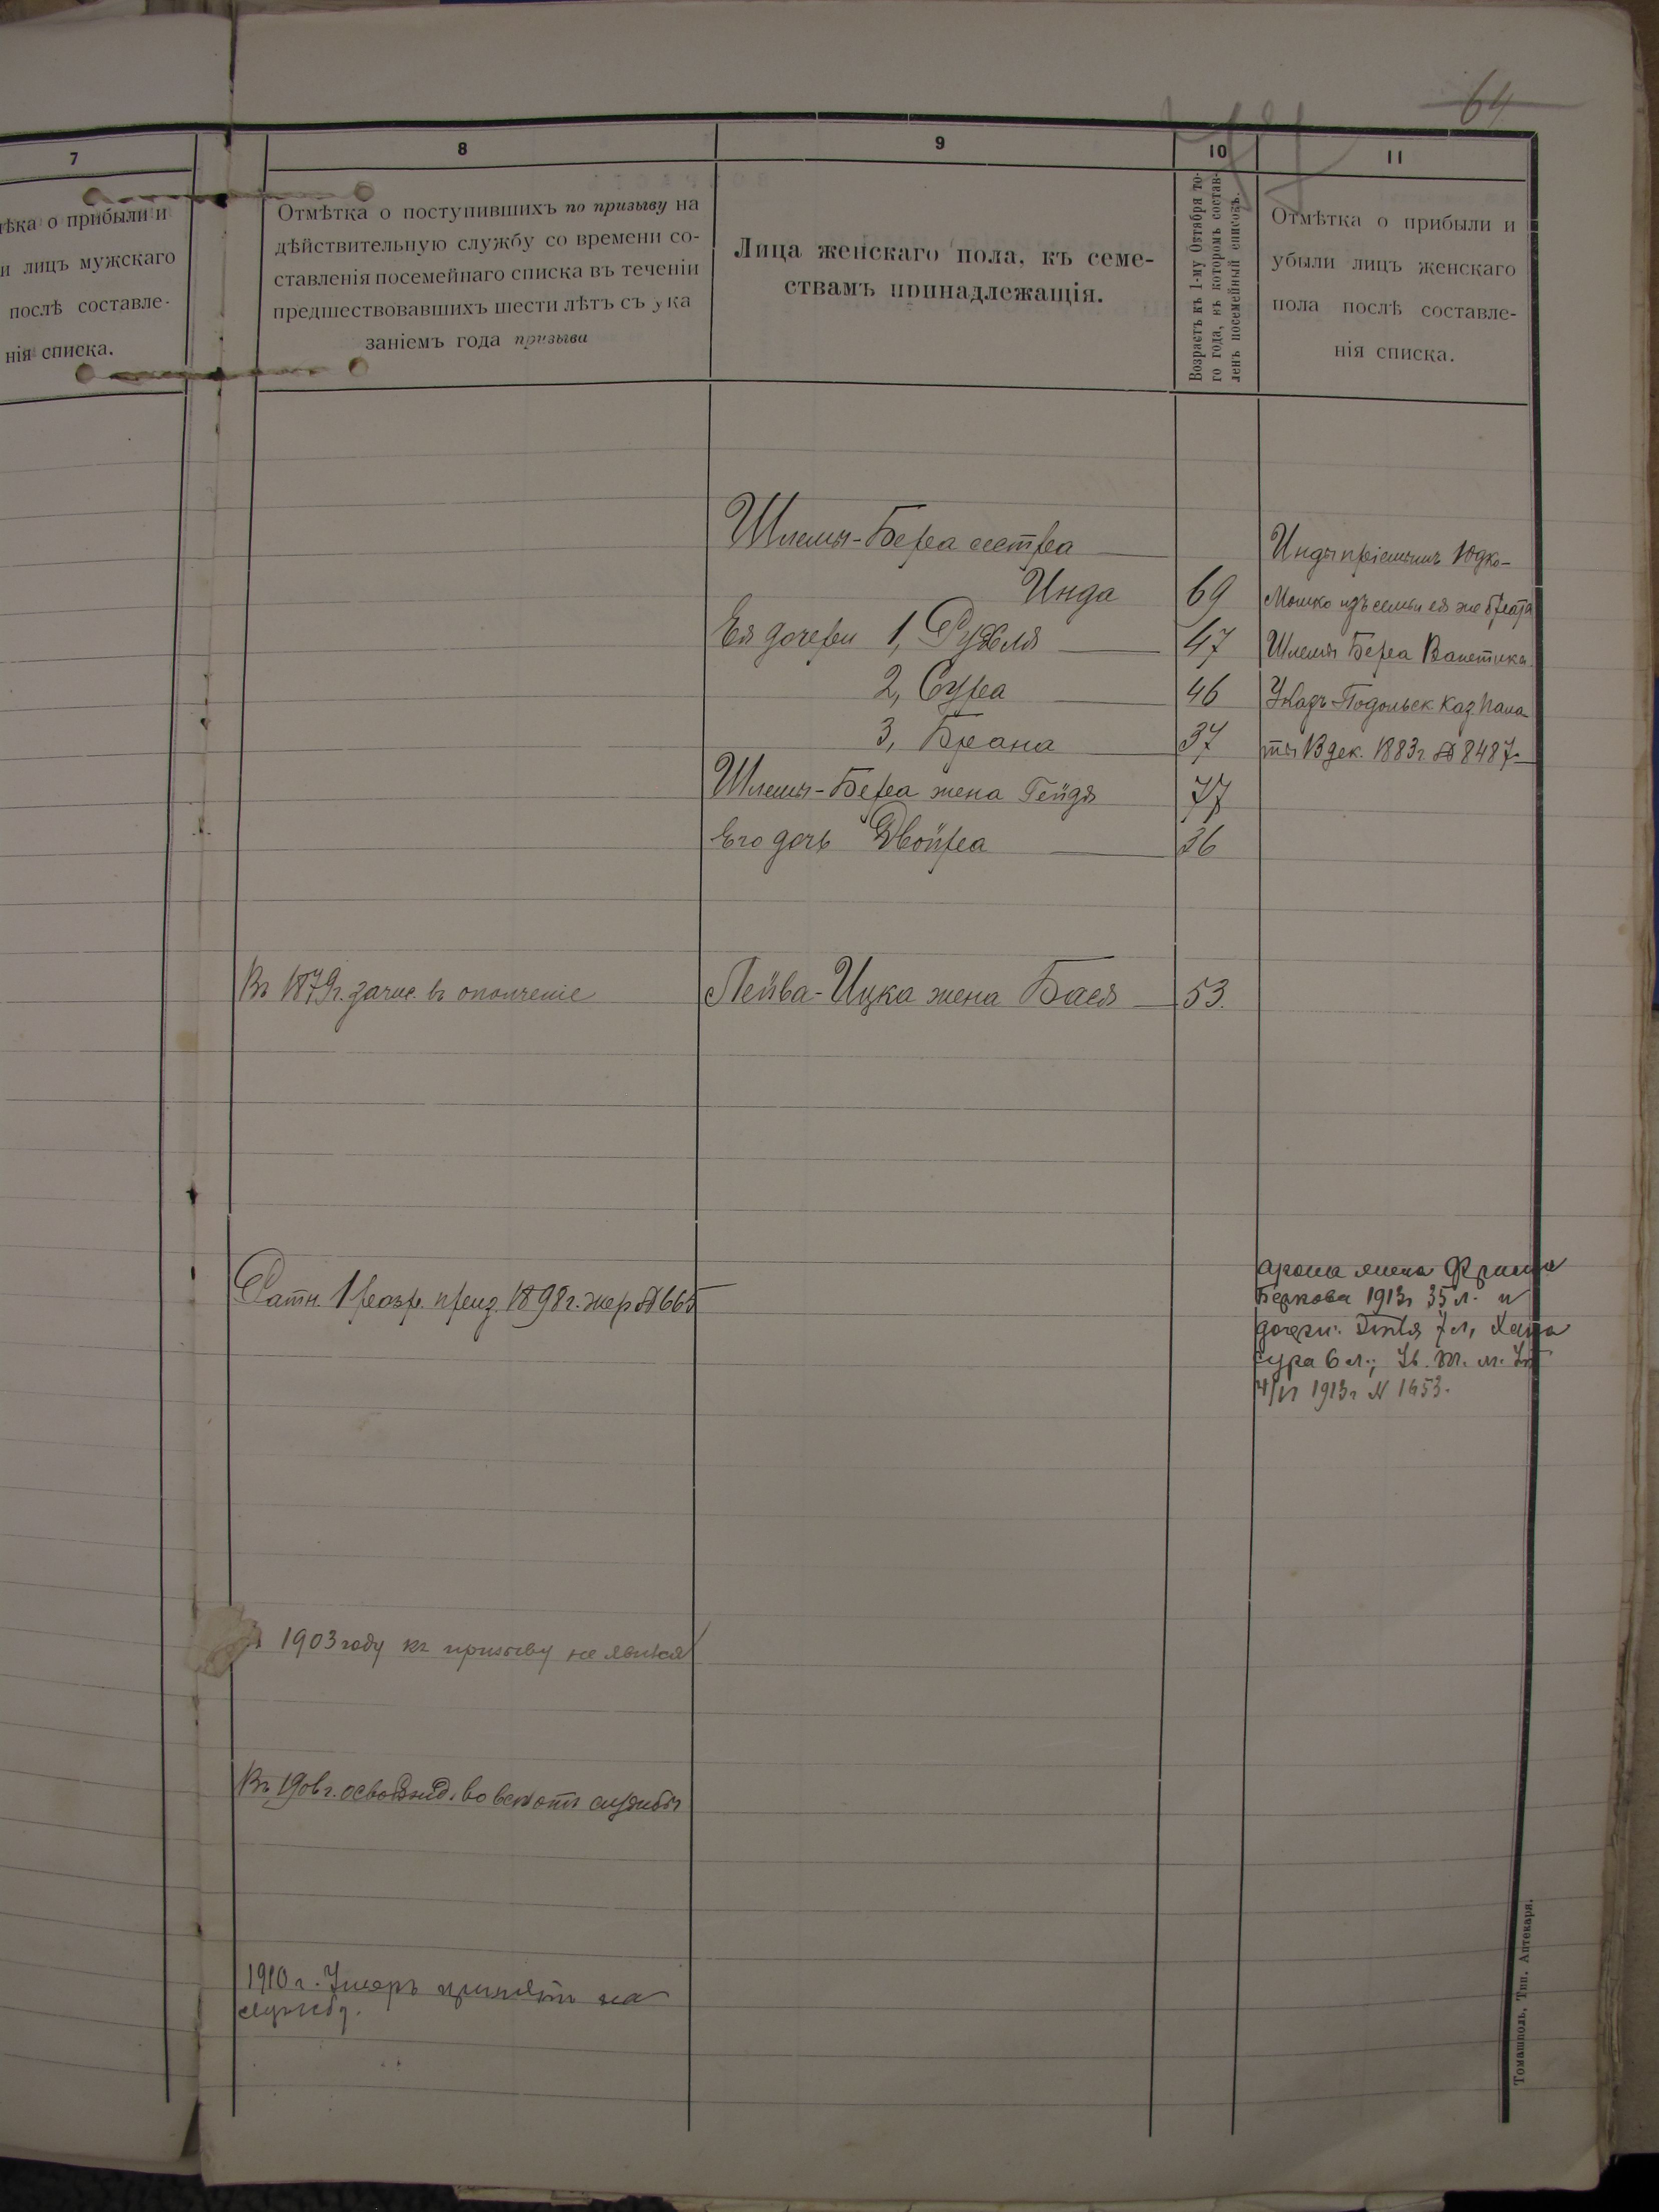 64
7
8
9
10
11
ѣка о прибыли и
и лицъ мужскаго
послѣ составле-
нія списка.
Отмѣтка о поступившихъ по призыву на
дѣйствительную службу со времени со-
ставленія посемейнаго списка въ теченіи
предшествовавшихъ шести лѣтъ съ ука
заніемъ года призыва
Лица женскаго пола, къ семе-
ствамъ принадлежащія.
Возрастъ къ 1-му Октября то-
го года, въ которомъ состав-
ленъ посемейный списокъ.
Отмѣтка о прибыли и
убыли лицъ женскаго
пола послѣ составле-
нія списка.
Шлемы-Бера сестра
Инда 69
Ея дочери 1, Рухля 47
2, Сура 46
3, Брана 37
Шлемы-Бера жена Гейдя 77
Его дочь Двойра 36
Инды пріемышъ Юдко-
Мошко изъ семьи ея же брата
Шлемы Бера
Указъ Подольск. Каз. Пала
ты 13 дек. 1883 г. № 8487
Въ 1879 г. зачис. въ ополченіе
Лейба-Ицка жена Бася 53.
Ратн. 1 разр. приз. 1898 г. жер. № 665
Арона жена
Беркова 1913 г 35 л. и
дочери: 7 л, Хана
Сура 6 л.;
1913 г № 1653.
1903 году къ призыву не явился
Въ 1906 г. освобожд. во вся отъ службы
1910 г. принятъ на
службу.
Томашполь, Тип. Аптекаря.